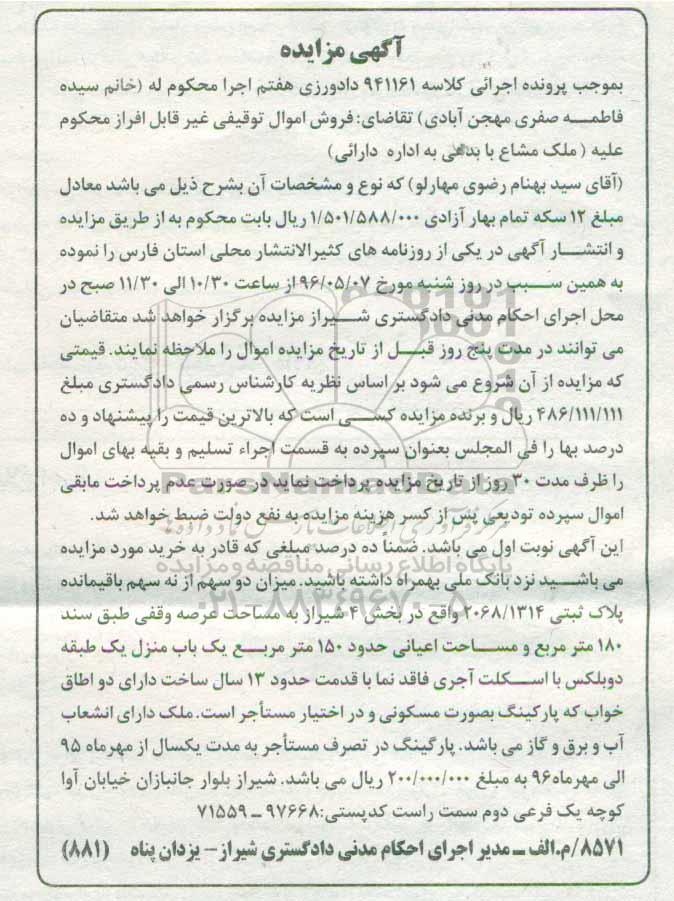 آگهی مزایده
بموجب پرونده اجرائی کلاسه ۹۴۱۱۶۱ دادورزی هفتم اجرا محکوم له (خانم سیده
فاطمه صفری مهجن آبادی) تقاضای: فروش اموال توقیفی غیر قابل افراز محکوم
علیه ( ملک مشاع با بدهی به اداره دارائی)
(آقای سید بهنام رضوی مهارلو) که نوع و مشخصات آن بشرح ذیل می باشد معادل
مبلغ ۱۲ سکه تمام بهار آزادی ۱/۵۰۱/۵۸۸/۰۰۰ ریال بابت محکوم به از طریق مزایده
و انتشار آگهی در یکی از روزنامه های کثیرالانتشار محلی استان فارس را نموده
به همین سبب در روز شنبه مورخ ۹۶/۰۵/۰۷ از ساعت ۱۰/۳۰ الی ۱۱/۳۰ صبح در
محل اجرای احکام مدنی دادگستری شیراز مزایده برگزار خواهد شد متقاضیان
می توانند در مدت پنج روز قبل از تاریخ مزایده اموال را ملاحظه نمایند. قیمتی
که مزایده از آن شروع می شود بر اساس نظریه کارشناس رسمی دادگستری مبلغ
۴۸۶/۱۱۱/۱۱۱ ریال و برنده مزایده کسی است که بالاترین قیمت را پیشنهاد و ده
درصد بها را فی المجلس بعنوان سپرده به قسمت اجراء تسلیم و بقیه بهای اموال
را ظرف مدت ۳۰ روز از تاریخ مزایده پرداخت نماید در صورت عدم پرداخت مابقی
اموال سپرده تودیعی پس از کسر هزینه مزایده به نفع دولت ضبط خواهد شد.
این آگهی نوبت اول می باشد. ضمنا ده درصد مبلغی که قادر به خرید مورد مزایده
می باشید نزد بانک ملی بهمراه داشته باشید. میزان دو سهم از نه سهم باقیمانده
پلاک ثبتی ۲۰۶۸/۱۳۱۴ واقع در بخش ۴ شیراز به مساحت عرصه وقفی طبق سند
۱۸۰ متر مربع و مساحت اعیانی حدود ۱۵۰ متر مربع یک باب منزل یک طبقه
دوبلکس با اسکلت آجری فاقد نما با قدمت حدود ۱۳ سال ساخت دارای دو اطاق
خواب که پارکینگ بصورت مسکونی و در اختیار مستأجر است. ملک دارای انشعاب
آب و برق و گاز می باشد. پارگینگ در تصرف مستأجر به مدت یکسال از مهرماه ۹۵
الی مهرماه۹۶ به مبلغ ۲۰۰/۰۰۰/۰۰۰ ریال می باشد. شیراز بلوار جانبازان خیابان آوا
کوچه یک فرعی دوم سمت راست کدپستی:۹۷۶۶۸ ــ ۷۱۵۵۹
۸۵۷۱/م.الف ــ مدیر اجرای احکام مدنی دادگستری شیراز– یزدان پناه (۸۸۱)
ParsNamadData
پایگاه اطلاع رسانی مناقصه و مزایده
۰۲۱-۸۸۳۴۹۶۷۰-۵